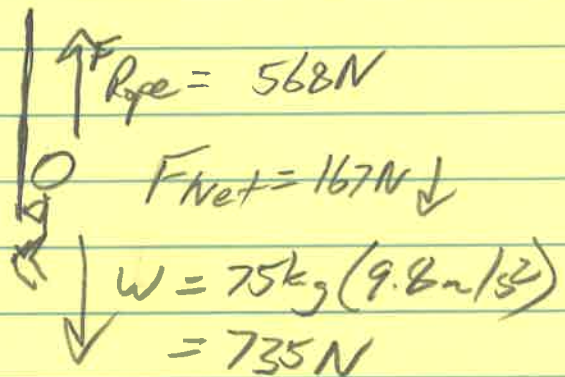 F Rope = 568N
F Net = 167N ↓
W = 75kg (9.8m/s²)
= 735N